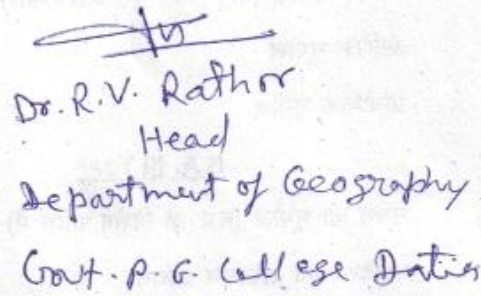 Dr. R.V. Rathor
Head
Department of Geography
Govt. P. G. College Datia